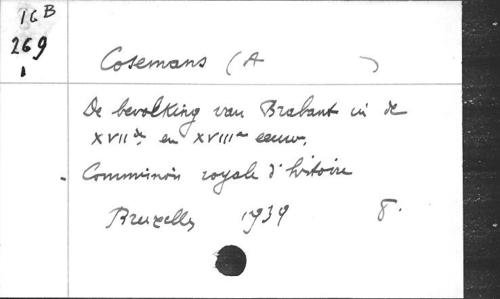 16 B
269
1
Cosemans (A )
De bevolking van Brabant in de
XVIIde en XVIIIde eeuw.
Commission royale d'histoire
Bruxelles 1939 8.